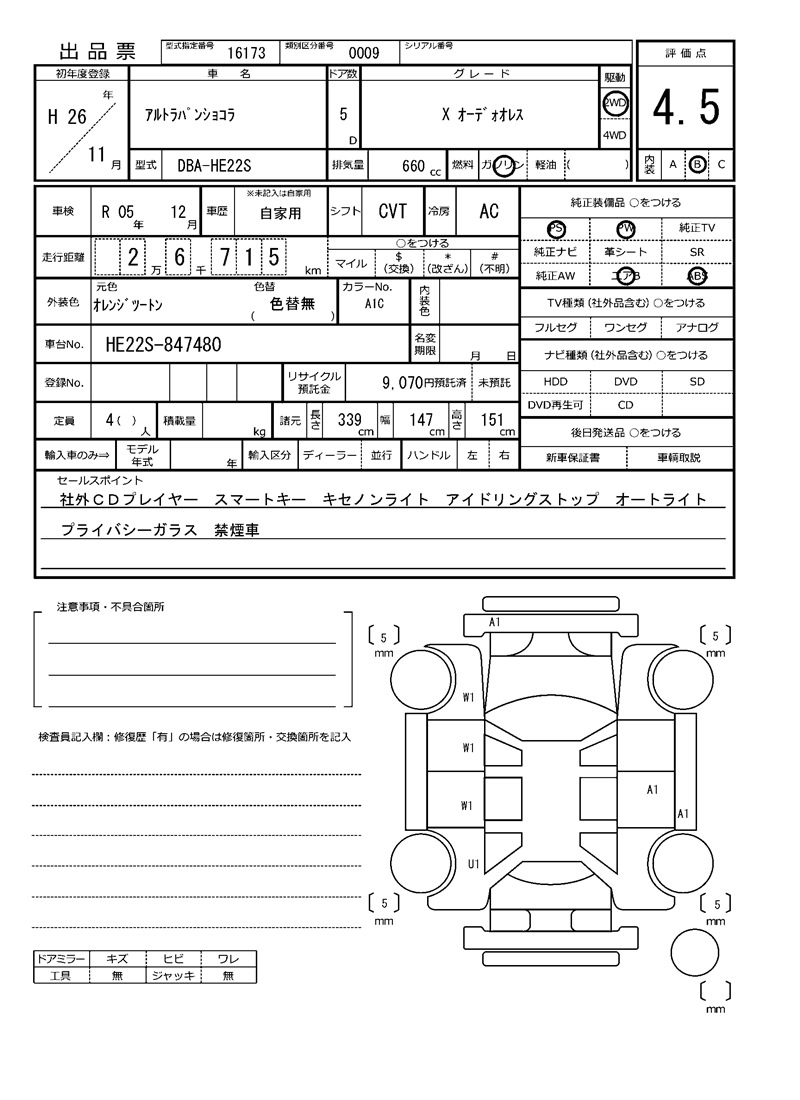 出品票 型式指定番号 16173 類別区分番号 0009 シリアル番号
評価点
4.5
内装 A B C
初年度登録 車名 ドア数 グレード 駆動
H 26 年 11 月 アルトラパンショコラ 5 D X オーディオレス 2WD 4WD
型式 DBA-HE22S 排気量 660 cc 燃料 ガソリン 軽油 ( )
車検 R 05 年 12 月 車歴 ※未記入は自家用 自家用 シフト CVT 冷房 AC
走行距離 2 万 6 千 7 1 5 km ○をつける マイル $ (交換) * (改ざん) # (不明)
外装色 元色 オレンジツートン 色替 ( 色替無 ) カラーNo. A1C 内装色
車台No. HE22S-847480 名変期限 月 日
登録No. リサイクル預託金 9,070円預託済 未預託
定員 4 ( ) 人 積載量 kg 諸元 長さ 339 cm 幅 147 cm 高さ 151 cm
輸入車のみ⇒ モデル年式 年 輸入区分 ディーラー 並行 ハンドル 左 右
純正装備品 ○をつける
PS PW 純正TV
純正ナビ 革シート SR
純正AW エアB ABS
TV種類(社外品含む) ○をつける
フルセグ ワンセグ アナログ
ナビ種類(社外品含む) ○をつける
HDD DVD SD
DVD再生可 CD
後日発送品 ○をつける
新車保証書 車輌取説
セールスポイント
社外CDプレイヤー スマートキー キセノンライト アイドリングストップ オートライト
プライバシーガラス 禁煙車
注意事項・不具合箇所
検査員記入欄：修復歴「有」の場合は修復箇所・交換箇所を記入
ドアミラー キズ ヒビ ワレ
工具 無 ジャッキ 無
A1
[ 5 ] mm
[ 5 ] mm
W1
W1
W1
A1
A1
U1
[ 5 ] mm
[ 5 ] mm
[ ] mm